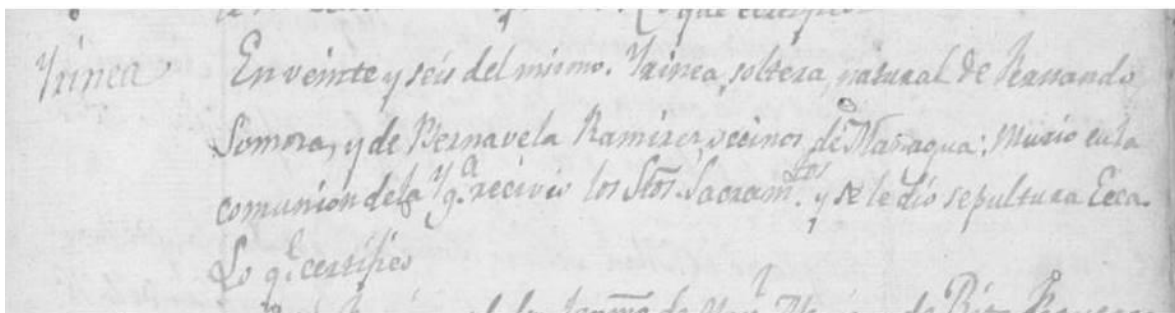 que certifico
Yrinea
En veinte y seis del mismo. Yrinea, soltera, natural de Fernando
Somora, y de Bernavela Ramires, vecinos de Managua: Murio en la
comunion de la Ygª. recivio los Stos. Sacramtos. y se le dio sepultura Ecca.
Lo q.e certifico